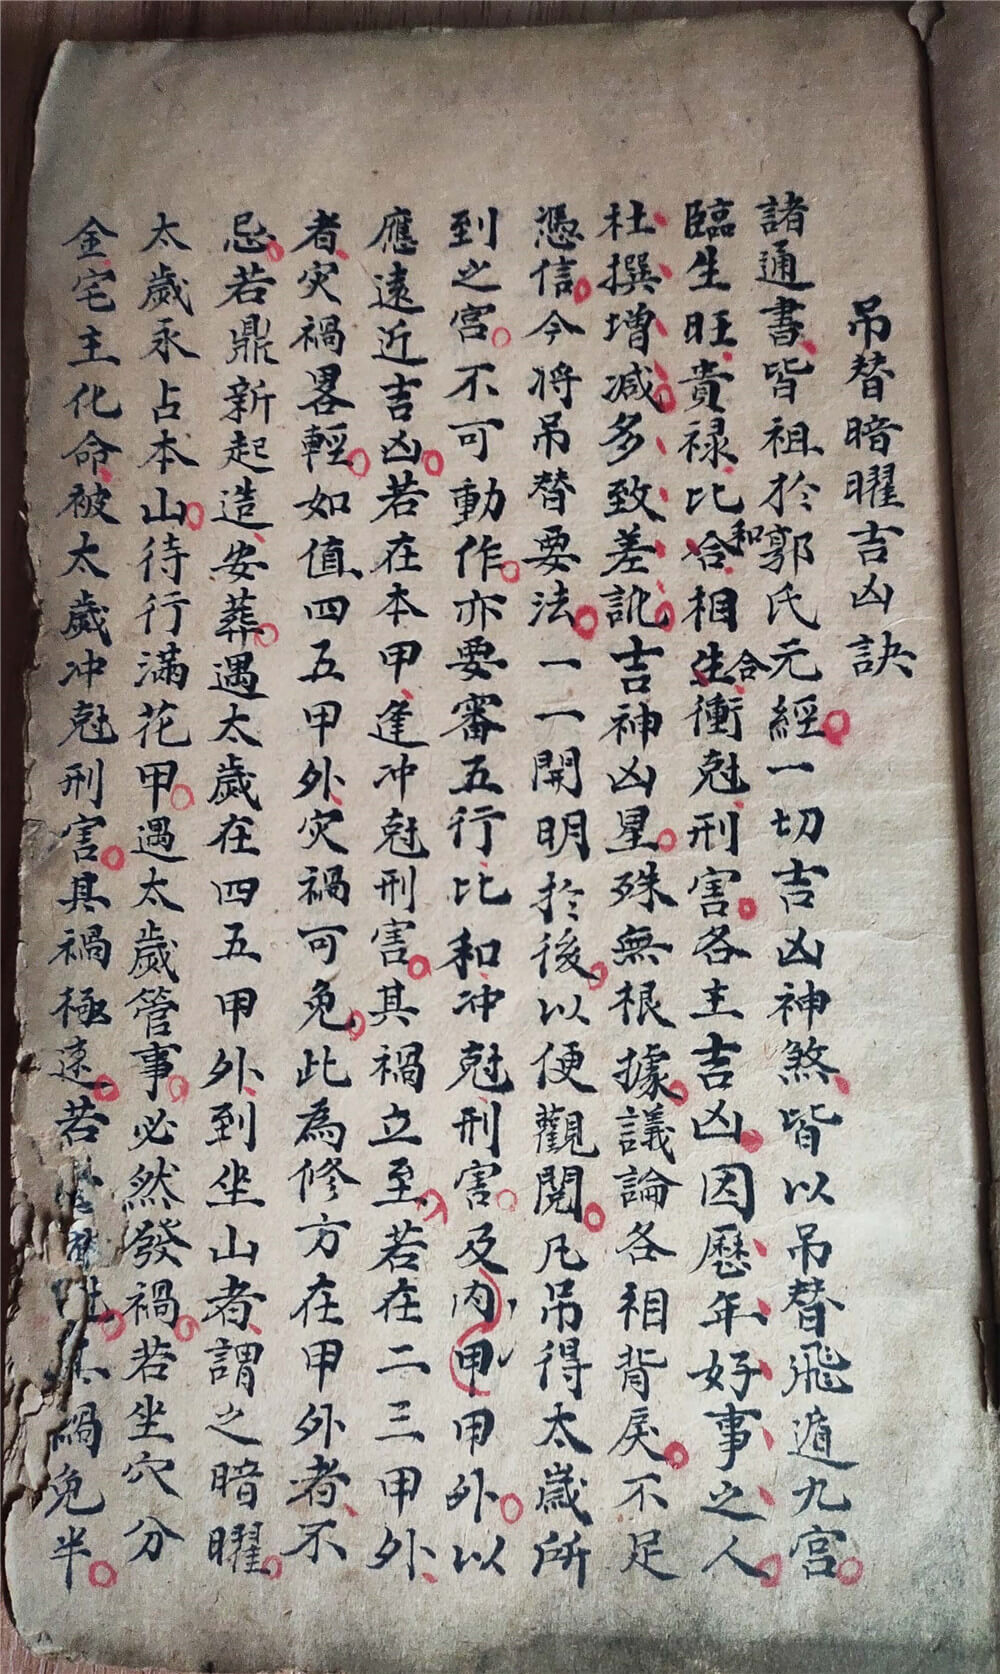 吊替暗曜吉凶訣
諸通書皆祖於郭氏元經一切吉凶神煞皆以吊替飛遁九宮
臨生旺貴祿比合和相生合衝尅刑害各主吉凶因歷年好事之人
杜撰增减多致差訛吉神凶星殊無根據議論各相背戾不足
憑信今将吊替要法一一開明於後以便觀閱凡吊得太歲所
到之宮不可動作亦要審五行比和冲尅刑害及内甲甲外以
應遠近吉凶若在本甲逢冲尅刑害其禍立至若在二三甲外
者灾禍畧輕如值四五甲外灾禍可免此為修方在甲外者不
忌若鼎新起造安葬遇太歲在四五甲外到坐山者謂之暗曜
太歲永占本山待行滿花甲遇太歲管事必然發禍若坐穴分
金宅主化命被太歲冲尅刑害其禍極速若其禍免半